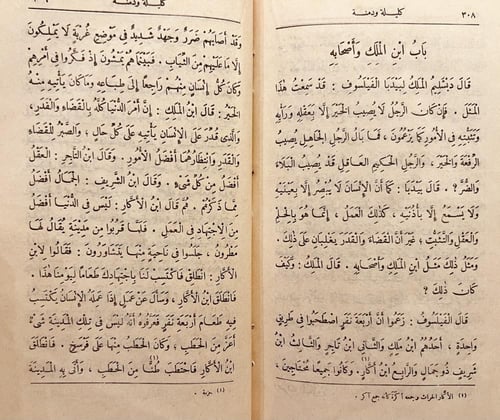 ٣٠٨
كليلة ودمنة
بَابُ ابْنِ الْمَلِكِ وَأَصْحَابِهِ
قَالَ دَبْشَلِيمُ الْمَلِكُ لِبَيْدَبَا الْفَيْلَسُوفِ : قَدْ سَمِعْتُ هٰذَا
الْمَثَلَ . فَإِنْ كَانَ الرَّجُلُ لَا يُصِيبُ الْخَيْرَ إِلَّا بِعَقْلِهِ وَرَأْيِهِ
وَتَثَبُّتِهِ فِي الْأُمُورِ كَمَا يَزْعُمُونَ ، فَمَا بَالُ الرَّجُلِ الْجَاهِلِ يُصِيبُ
الرِّفْعَةَ وَالْخَيْرَ ، وَالرَّجُلُ الْحَكِيمُ الْعَاقِلُ قَدْ يُصِيبُ الْبَلَاءَ
وَالضُّرَّ ؟ . قَالَ بَيْدَبَا : كَمَا أَنَّ الْإِنْسَانَ لَا يُبْصِرُ إِلَّا بِعَيْنَيْهِ
وَلَا يَسْمَعُ إِلَّا بِأُذُنَيْهِ ، كَذٰلِكَ الْعَمَلُ ، إِنَّمَا هُوَ بِالْحِلْمِ
وَالْعَقْلِ وَالتَّثَبُّتِ ، غَيْرَ أَنَّ الْقَضَاءَ وَالْقَدَرَ يَغْلِبَانِ عَلَى ذٰلِكَ .
وَمَثَلُ ذٰلِكَ مَثَلُ ابْنِ الْمَلِكِ وَأَصْحَابِهِ . قَالَ الْمَلِكُ : وَكَيْفَ
كَانَ ذٰلِكَ ؟
قَالَ الْفَيْلَسُوفُ : زَعَمُوا أَنَّ أَرْبَعَةَ نَفَرٍ اصْطَحَبُوا فِي طَرِيقٍ
وَاحِدَةٍ ، أَحَدُهُمُ ابْنُ مَلِكٍ وَالثَّانِي ابْنُ تَاجِرٍ وَالثَّالِثُ ابْنُ
شَرِيفٍ ذُو جَمَالٍ وَالرَّابِعُ ابْنُ أَكَّارٍ (١) . وَكَانُوا جَمِيعًا مُحْتَاجِينَ ،
(١) الأكار الحراث وجمعه أكرة كأنه جمع آكر .
كليلة ودمنة
وَقَدْ أَصَابَهُمْ ضَرَرٌ وَجَهْدٌ شَدِيدٌ فِي مَوْضِعِ غُرْبَةٍ لَا يَمْلِكُونَ
إِلَّا مَا عَلَيْهِمْ مِنَ الثِّيَابِ . فَبَيْنَمَا هُمْ يَمْشُونَ إِذْ فَكَّرُوا فِي أَمْرِهِمْ
وَكَانَ كُلُّ إِنْسَانٍ مِنْهُمْ رَاجِعًا إِلَى طِبَاعِهِ وَمَا كَانَ يَأْتِيهِ مِنْهُ
الْخَيْرُ : قَالَ ابْنُ الْمَلِكِ : إِنَّ أَمْرَ الدُّنْيَا كُلَّهُ بِالْقَضَاءِ وَالْقَدَرِ ،
وَالَّذِي قُدِّرَ عَلَى الْإِنْسَانِ يَأْتِيهِ عَلَى كُلِّ حَالٍ ، وَالصَّبْرُ لِلْقَضَاءِ
وَالْقَدَرِ وَانْتِظَارُهُمَا أَفْضَلُ الْأُمُورِ . وَقَالَ ابْنُ التَّاجِرِ : الْعَقْلُ
أَفْضَلُ مِنْ كُلِّ شَيْءٍ . وَقَالَ ابْنُ الشَّرِيفِ : الْجَمَالُ أَفْضَلُ
مِمَّا ذَكَرْتُمْ . ثُمَّ قَالَ ابْنُ الْأَكَّارِ : لَيْسَ فِي الدُّنْيَا أَفْضَلُ
مِنَ الِاجْتِهَادِ فِي الْعَمَلِ . فَلَمَّا قَرُبُوا مِنْ مَدِينَةٍ يُقَالُ لَهَا
مَطْرُونُ ، جَلَسُوا فِي نَاحِيَةٍ مِنْهَا يَتَشَاوَرُونَ : فَقَالُوا لِابْنِ
الْأَكَّارِ : انْطَلِقْ فَاكْتَسِبْ لَنَا بِاجْتِهَادِكَ طَعَامًا لِيَوْمِنَا هٰذَا .
فَانْطَلَقَ ابْنُ الْأَكَّارِ ، وَسَأَلَ عَنْ عَمَلٍ إِذَا عَمِلَهُ الْإِنْسَانُ يَكْتَسِبُ
فِيهِ طَعَامَ أَرْبَعَةِ نَفَرٍ فَعَرَّفُوهُ أَنَّهُ لَيْسَ فِي تِلْكَ الْمَدِينَةِ شَيْءٌ
أَعَزَّ مِنَ الْحَطَبِ ، وَكَانَ الْحَطَبُ مِنْهَا عَلَى فَرْسَخٍ . فَانْطَلَقَ
ابْنُ الْأَكَّارِ فَاحْتَطَبَ طُنًّا (١) مِنَ الْحَطَبِ ، وَأَتَى بِهِ الْمَدِينَةَ
(١) حزمة .